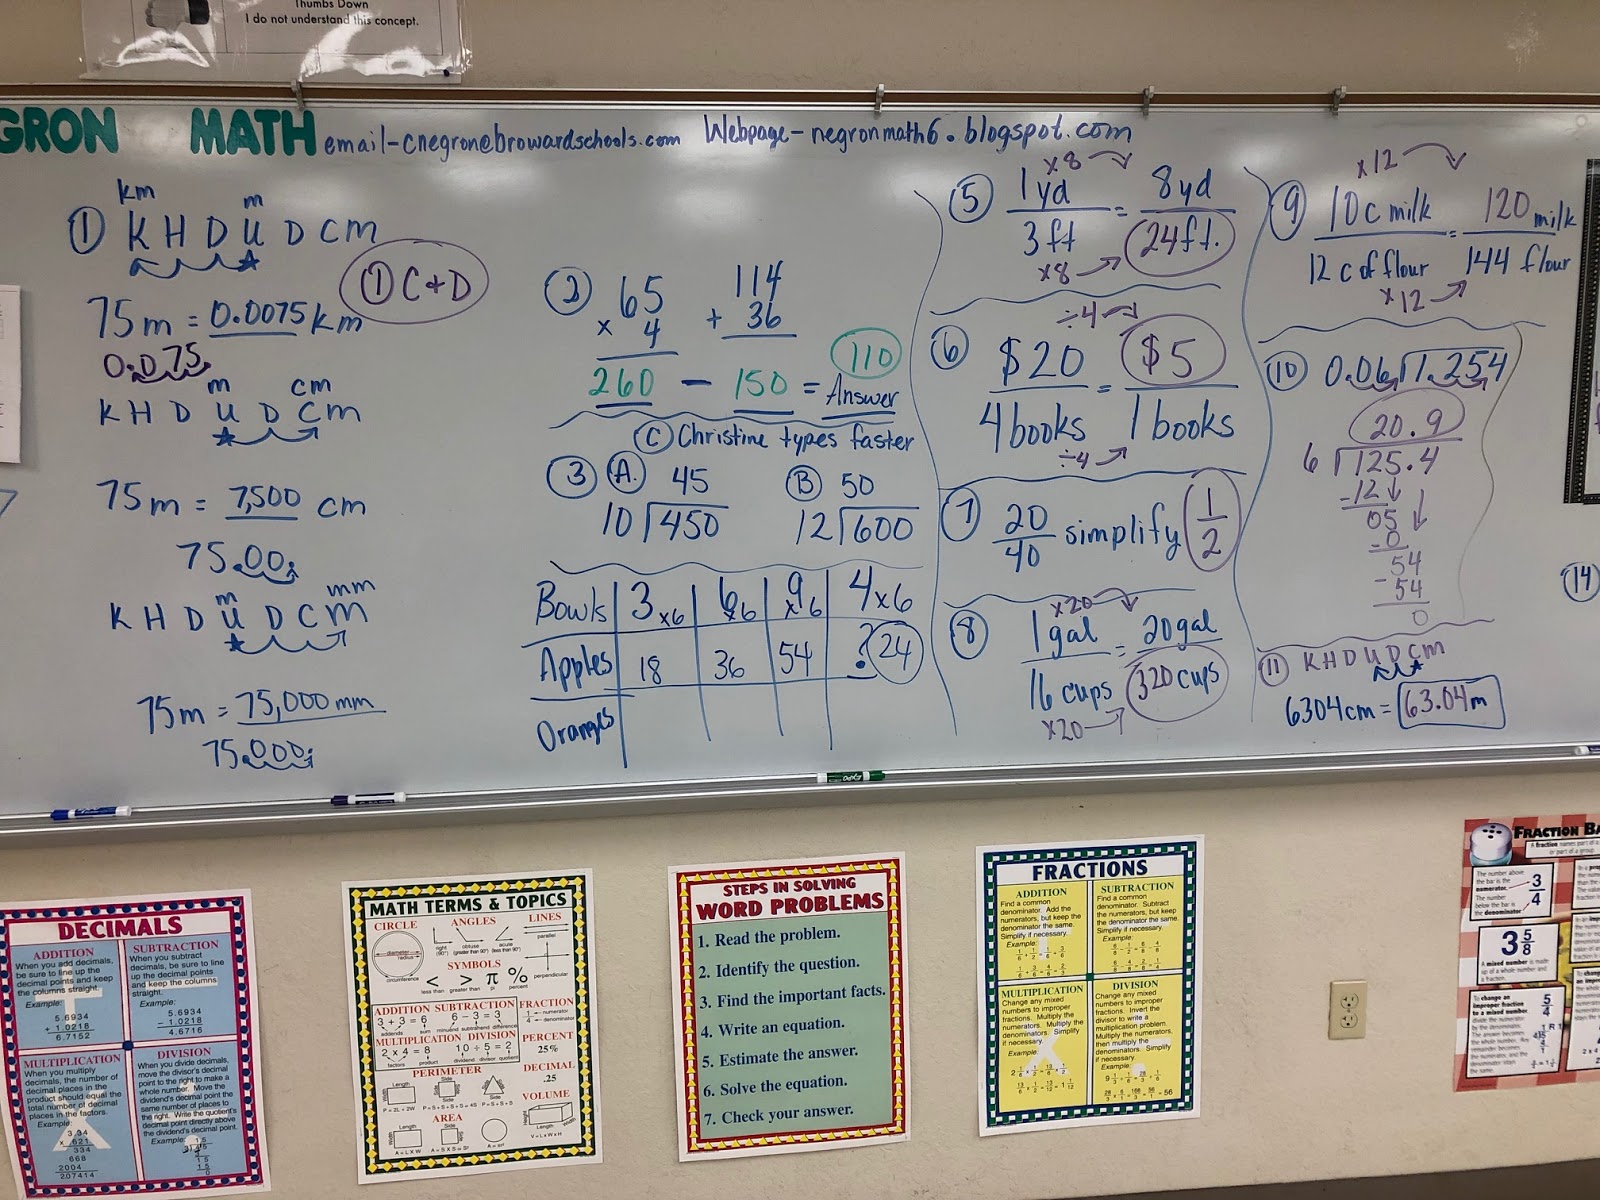 Thumbs Down
I do not understand this concept.
GRON MATH email-cnegron@browardschools.com Webpage-negronmath6.blogspot.com
km m
① K H D U D C M
① C + D
75m = 0.0075 km
0.075
m cm
K H D U D C M
75m = 7,500 cm
75.00.
m mm
K H D U D C M
75m = 75,000 mm
75.000.
② 65 114
× 4 + 36
260 – 150 = Answer
110
Ⓒ Christine types faster
③ Ⓐ 45 Ⓑ 50
10 450 12 600
Bowls 3 x6 6 x6 9 x6 4 x6
Apples 18 36 54 ? 24
Oranges
x8
⑤ 1 yd = 8 yd
3 ft 24 ft.
x8
÷4
⑥ $20 = $5
4 books 1 books
÷4
⑦ 20/40 simplify 1/2
x20
⑧ 1 gal = 20 gal
16 cups 320 cups
x20
x12
⑨ 10 c milk = 120 milk
12 c of flour 144 flour
x12
⑩ 0.06 1.254
20.9
6 125.4
-12
05
-0
54
-54
0
⑪ K H D U D C M
6304cm = 63.04m
⑭
DECIMALS
ADDITION
When you add decimals,
be sure to line up the
decimal points and keep
the columns straight.
Example:
5.6934
+ 1.0218
6.7152
SUBTRACTION
When you subtract
decimals, be sure to line
up the decimal points
and keep the columns
straight.
Example:
5.6934
– 1.0218
4.6716
MULTIPLICATION
When you multiply
decimals, the number of
decimal places in the
product should equal the
total number of decimal
places in the factors.
Example:
3.34
x 621
334
668
2004
207414
DIVISION
When you divide decimals,
move the divisor's decimal
point to the right to make a
whole number. Move the
dividend's decimal point the
same number of places to
the right. Write the quotient's
decimal point directly above
the dividend's decimal point.
Example:
MATH TERMS & TOPICS
CIRCLE
diameter
circumference
ANGLES
right
(90°)
obtuse
(greater than 90°)
acute
(less than 90°)
LINES
parallel
perpendicular
SYMBOLS
< > π %
less than greater than pi percent
ADDITION
3 + 3 = 6
addends sum
SUBTRACTION
6 – 3 = 3
minuend subtrahend difference
FRACTION
1 numerator
4 denominator
MULTIPLICATION
2 x 4 = 8
factors product
DIVISION
10 ÷ 5 = 2
dividend divisor quotient
PERCENT
25%
PERIMETER
Length
Side
P = 2L + 2W
P = S + S + S + S = 4S
P = S + S + S
DECIMAL
.25
AREA
Length
Side
A = L X W
VOLUME
V = L x W x H
STEPS IN SOLVING
WORD PROBLEMS
1. Read the problem.
2. Identify the question.
3. Find the important facts.
4. Write an equation.
5. Estimate the answer.
6. Solve the equation.
7. Check your answer.
FRACTIONS
ADDITION
Find a common
denominator. Add the
numerators, but keep the
denominator the same.
Simplify if necessary.
Example:
SUBTRACTION
Find a common
denominator. Subtract
the numerators, but keep
the denominator the same.
Simplify if necessary.
Example:
MULTIPLICATION
Change any mixed
numbers to improper
fractions. Multiply the
numerators. Multiply the
denominators. Simplify
if necessary.
Example:
DIVISION
Change any mixed
numbers to improper
fractions. Invert the
divisor to write a
multiplication problem.
Multiply the numerators,
then multiply the
denominators. Simplify
if necessary.
Example:
FRACTION BA
A fraction names part of a
or part of a group.
The number above
the bar is the
numerator.
The number
below the bar is
the denominator
3/4
3 5/8
A mixed number is made
up of a whole number and a
fraction.
To change an
improper fraction
to a mixed number,
divide the numerator
by the denominator.
5/4